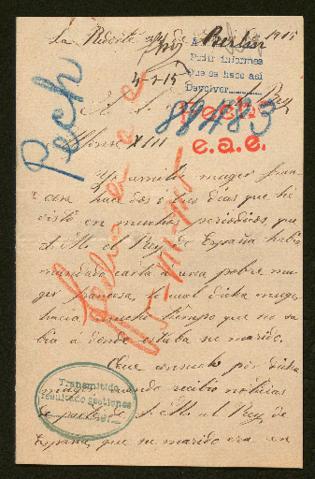 La Réole de 1915
Berlin
Pedir informes
Que se hace así
Devolver
4-7-15
A S. M. el Rey
88483
Pech
Alfonso XIII
e.a.e.
Una humilde muger fran-
cesa hace dos o tres dias que he
visto en muchos periodicos que
S. M. el Rey de España había
mandado carta a una pobre mu-
ger francesa, la cual dicha muger
hacia mucho tiempo que no sa-
bia a donde estaba su marido.
Que consuelo por dicha
muger, cuando recibió noticias
de parte de S. M. el Rey de
España, que su marido era en
Transmitido
resultado gestiones